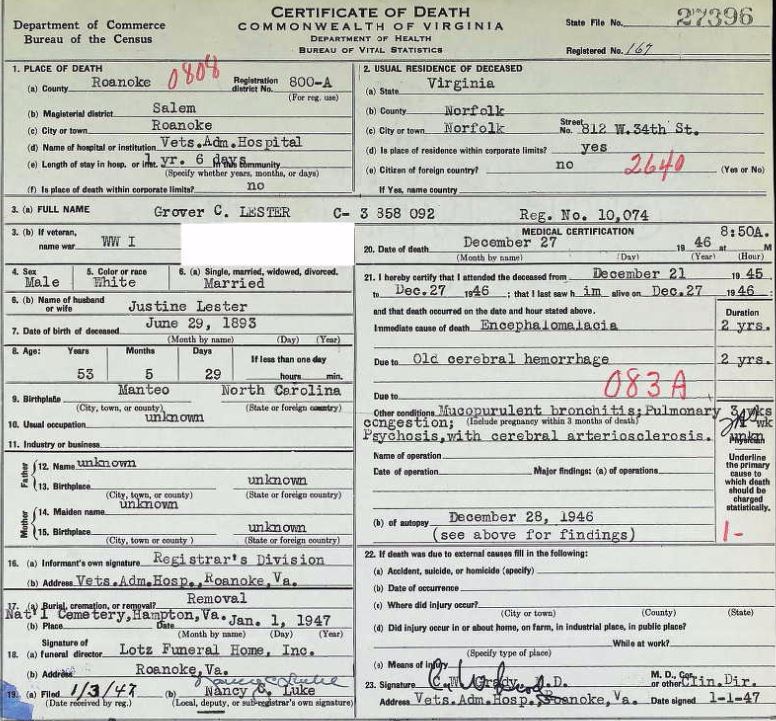 CERTIFICATE OF DEATH
COMMONWEALTH OF VIRGINIA
DEPARTMENT OF HEALTH
BUREAU OF VITAL STATISTICS
Department of Commerce
Bureau of the Census
State File No. 27396
Registered No. 167
1. PLACE OF DEATH
(a) County Roanoke 0808 Registration district No. 800-A
(For reg. use)
(b) Magisterial district Salem
(c) City or town Roanoke
(d) Name of hospital or institution Vets.Adm.Hospital
(e) Length of stay in hosp. or inst. 1 yr. 6 days In this community
(Specify whether years, months, or days)
(f) Is place of death within corporate limits? no
2. USUAL RESIDENCE OF DECEASED
(a) State Virginia
(b) County Norfolk
(c) City or town Norfolk Street No. 812 W.34th St.
(d) Is place of residence within corporate limits? yes
(e) Citizen of foreign country? no 2640 (Yes or No)
If Yes, name country
3. (a) FULL NAME Grover C. LESTER C- 3 858 092 Reg. No. 10,074
3. (b) If veteran, name war WW I
4. Sex Male
5. Color or race White
6. (a) Single, married, widowed, divorced. Married
6. (b) Name of husband or wife Justine Lester
7. Date of birth of deceased June 29, 1893
(Month by name) (Day) (Year)
8. Age: Years Months Days If less than one day
53 5 29 hours min.
9. Birthplace Manteo North Carolina
(City, town, or county) (State or foreign country)
10. Usual occupation unknown
11. Industry or business
Father
12. Name unknown
13. Birthplace unknown
(City, town, or county) (State or foreign country)
Mother
14. Maiden name unknown
15. Birthplace unknown
(City, town, or county) (State or foreign country)
16. (a) Informant's own signature Registrar's Division
(b) Address Vets.Adm.Hosp.,Roanoke,Va.
17. (a) Burial, cremation, or removal? Removal
(b) Place Nat'l Cemetery,Hampton,Va. Date Jan. 1, 1947
(Month by name) (Day) (Year)
18. (a) Signature of funeral director Lotz Funeral Home, Inc.
(b) Address Roanoke,Va.
Nancy C. Luke
19. (a) Filed 1/3/47 (b) Nancy C. Luke
(Date received by reg.) (Local, deputy, or sub-registrar's own signature)
MEDICAL CERTIFICATION
20. Date of death December 27 1946 at 8:50A. M
(Month by name) (Day) (Year) (Hour)
21. I hereby certify that I attended the deceased from December 21 1945
to Dec.27 1946 ; that I last saw h im alive on Dec.27 1946 ;
and that death occurred on the date and hour stated above. Duration
Immediate cause of death Encephalomalacia 2 yrs.
Due to Old cerebral hemorrhage 2 yrs.
Due to 083A
Other conditions Mucopurulent bronchitis; Pulmonary 3 wks
congestion; (Include pregnancy within 3 months of death) wk
Psychosis,with cerebral arteriosclerosis. unkn
Physician
Name of operation
Date of operation Major findings: (a) of operations
Underline the primary cause to which death should be charged statistically.
1-
(b) of autopsy December 28, 1946
(see above for findings)
22. If death was due to external causes fill in the following:
(a) Accident, suicide, or homicide (specify)
(b) Date of occurrence
(c) Where did injury occur?
(City or town) (County) (State)
(d) Did injury occur in or about home, on farm, in industrial place, in public place?
While at work?
(Specify type of place)
(e) Means of injury
23. Signature C.W. Grady M.D. M. D., Cor. or other Clin.Dir.
Address Vets.Adm.Hosp. Roanoke, Va. Date signed 1-1-47